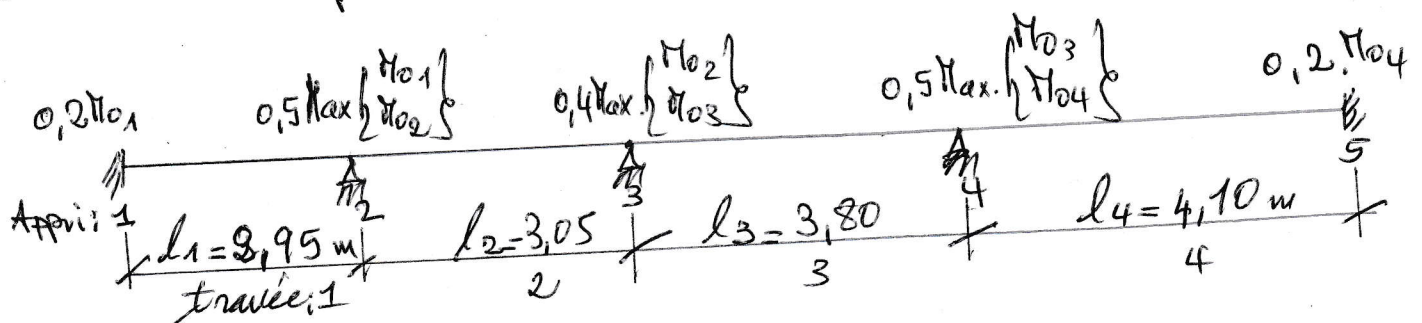 0,2 M01
0,5 Max { M01 M02 }
0,4 Max. { M02 M03 }
0,5 Max. { M03 M04 }
0,2. M04
Appui: 1
2
3
4
5
l1 = 2,95 m
l2 = 3,05
l3 = 3,80
l4 = 4,10 m
travée: 1
2
3
4